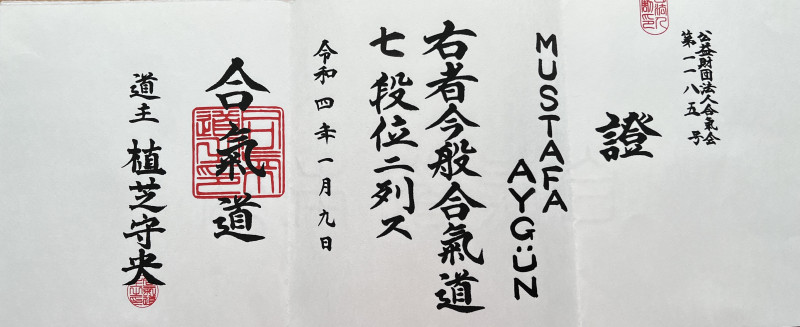 公益財団法人合氣会
第一一八五号
證
MUSTAFA
AYGÜN
右者今般合氣道
七段位ニ列ス
令和四年一月九日
合氣道
道主 植芝守央